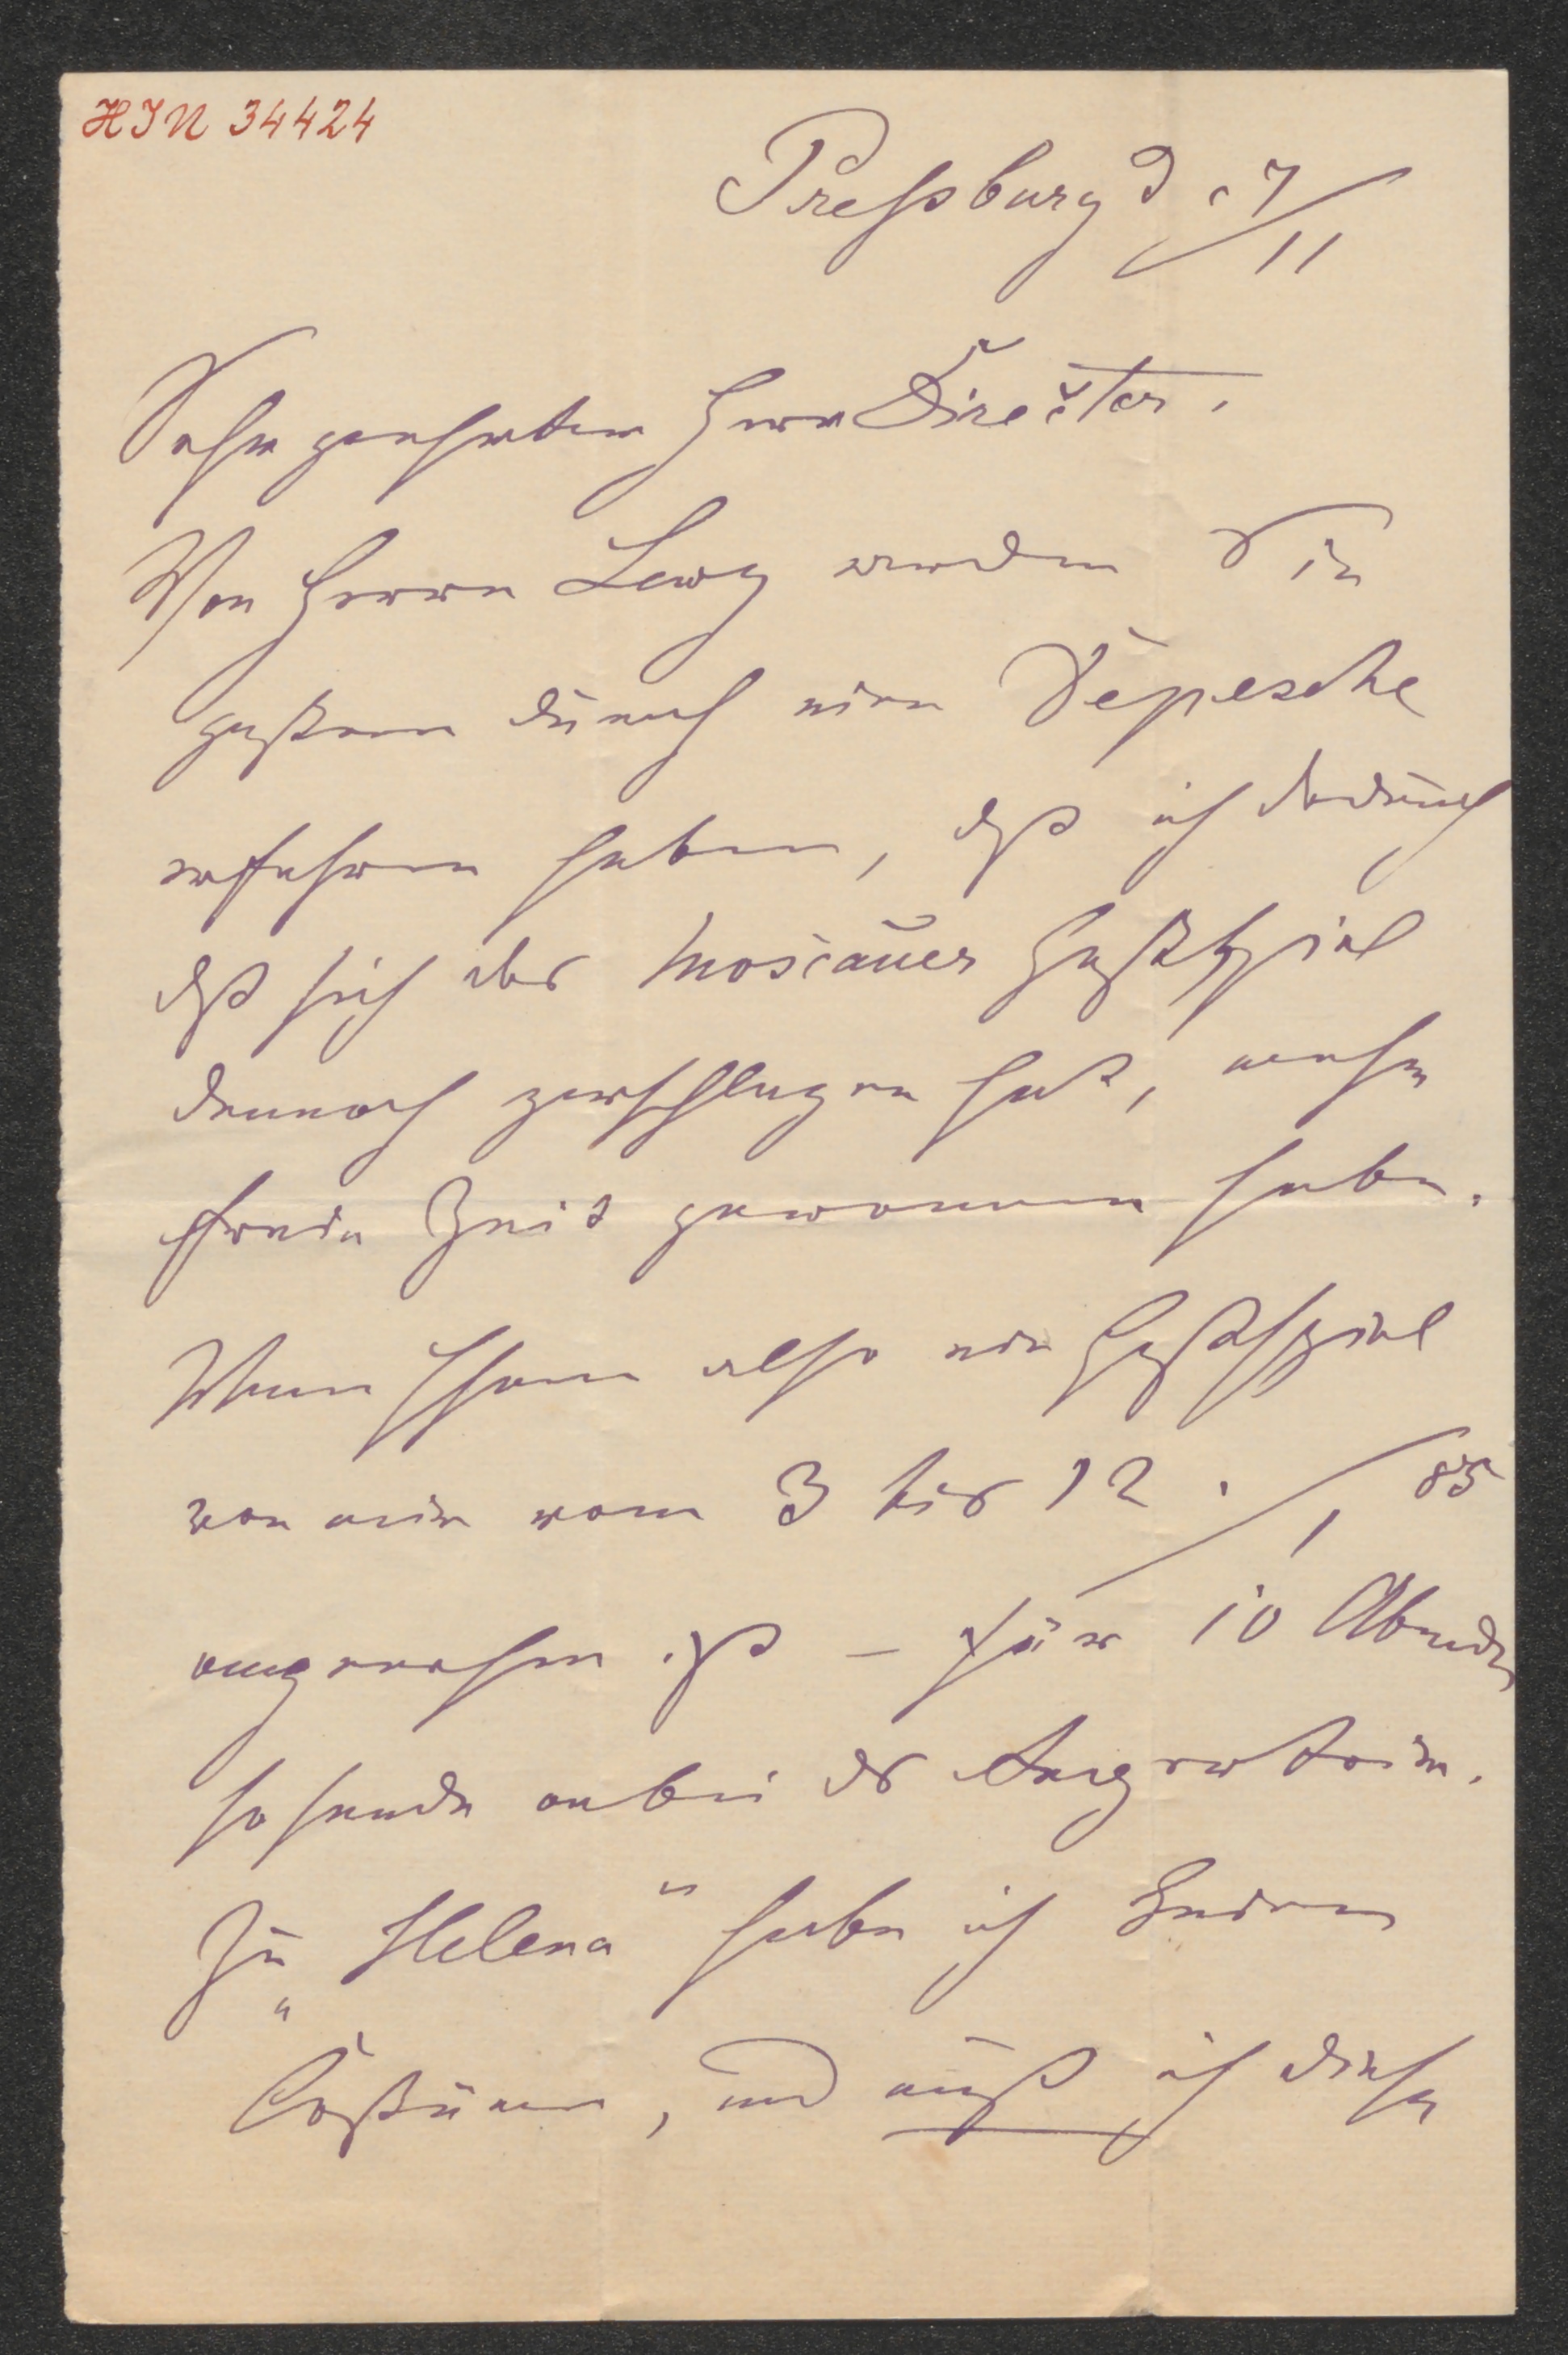 HIN 34424
Preßburg d. 7/11
Sehr geehrter Herr Director.
Von Herrn Lewy werden Sie
gestern durch eine Depesche
erfahren haben, daß ich dadurch
daß sich das Moscauer Gastspiel
dennoch zerschlagen hat, mehr
freie Zeit gewonnen habe.
Wenn Ihnen also ein Gastspiel
von mir vom 3 bis 12./1 85
angenehm ist – für 10 Abende
so sende anbei das
Zu „Helena" habe ich keine
Costüme, und muß ich diese